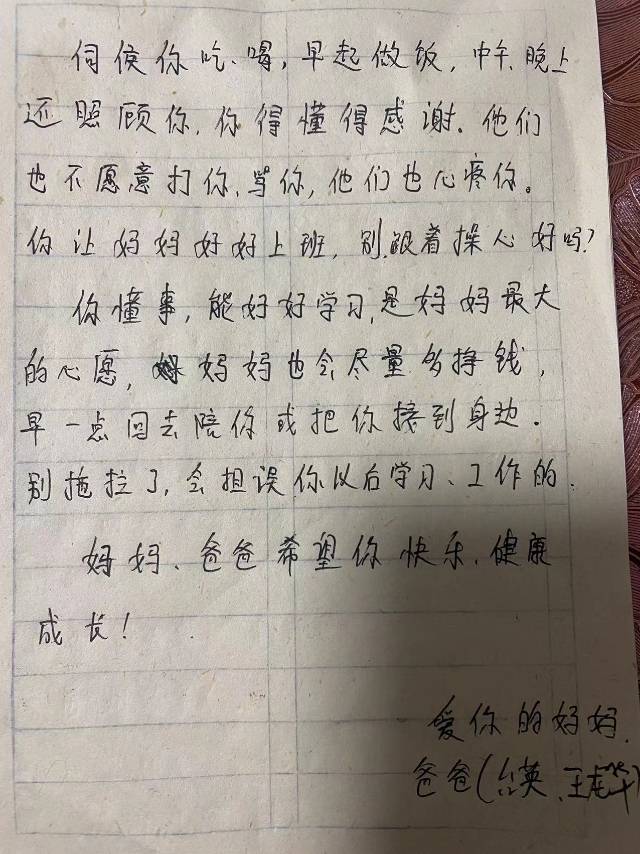 伺候你吃、喝，早起做饭，中午、晚上
还照顾你，你得懂得感谢。他们
也不愿意打你、骂你，他们也心疼你。
你让妈妈好好上班，别跟着操心好吗？
你懂事，能好好学习，是妈妈最大
的心愿，妈妈也会尽量多挣钱，
早一点回去陪你或把你接到身边。
别拖拉了，会担误你以后学习、工作的。
妈妈、爸爸希望你快乐、健康
成长！
爱你的妈妈、
爸爸（台英、王龙华）